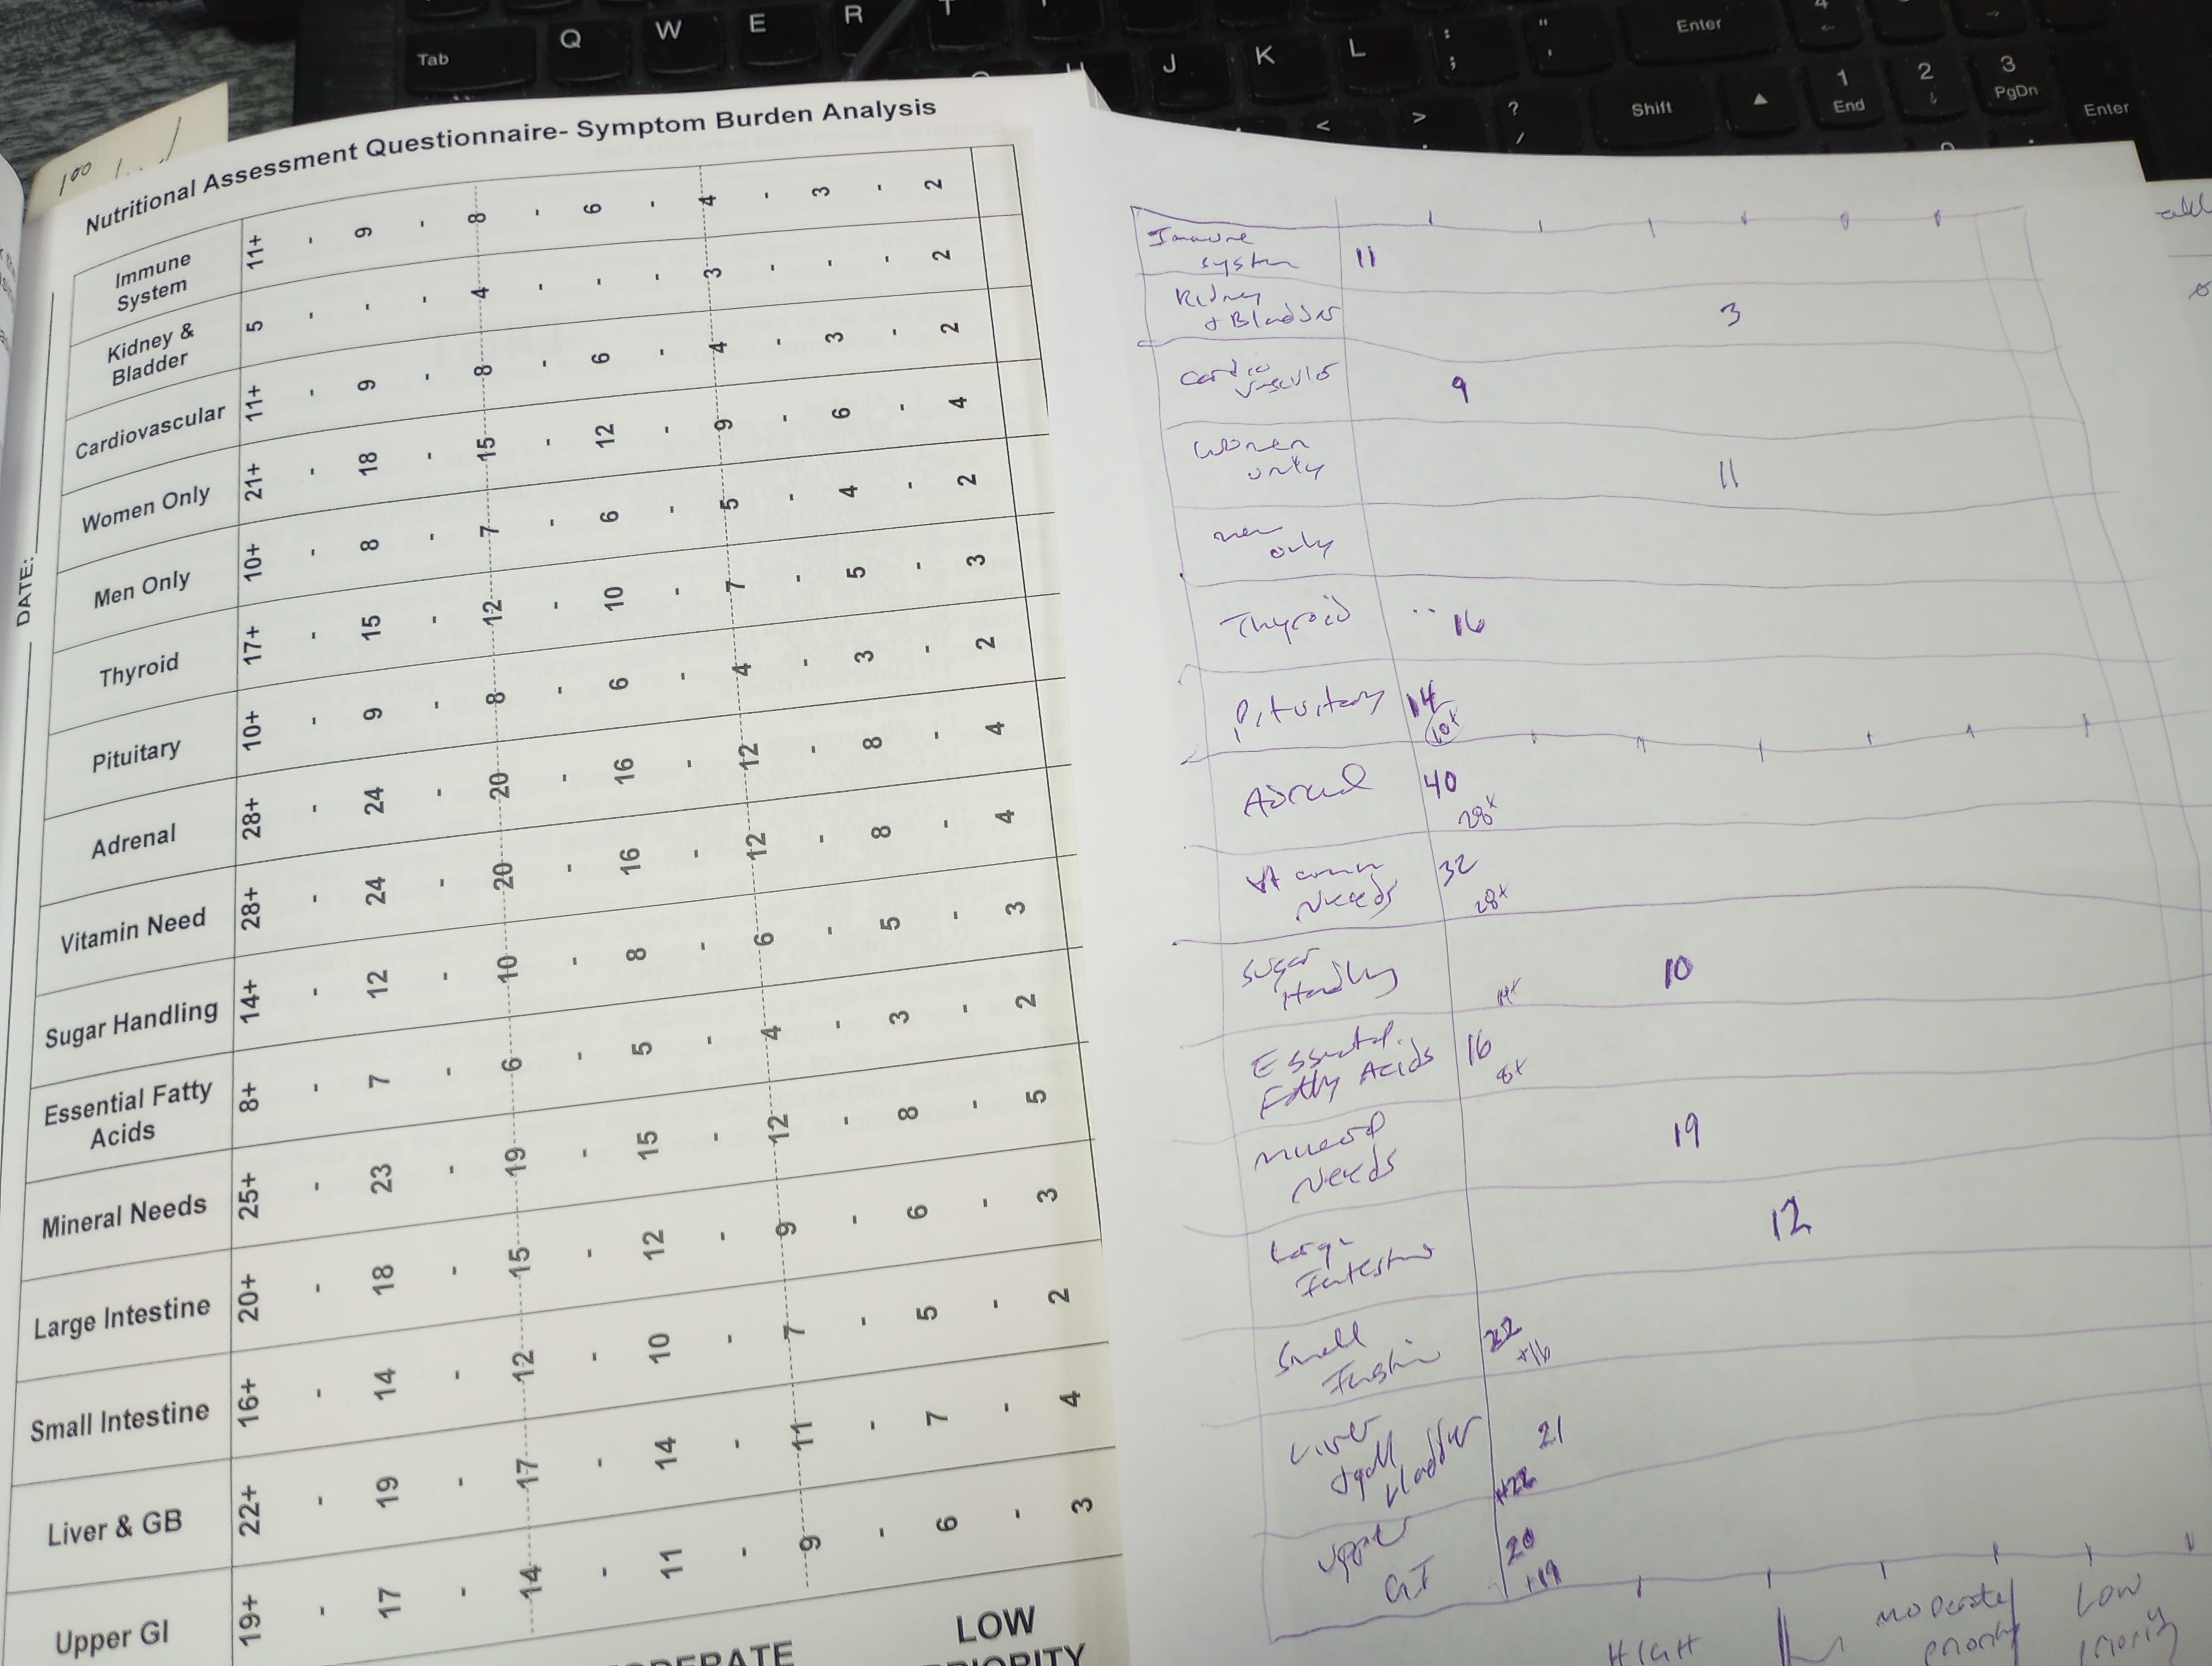 Tab Q W E R T
J K L : ; " ' Enter 4
< > ? / Shift 1 End 2 3 PgDn Enter
100
Nutritional Assessment Questionnaire- Symptom Burden Analysis
DATE:
Immune System 11+ - 9 - 8 - 6 - 4 - 3 - 2
Kidney & Bladder 5 - - 4 - - - 3 - - - 2
Cardiovascular 11+ - 9 - 8 - 6 - 4 - 3 - 2
Women Only 21+ - 18 - 15 - 12 - 9 - 6 - 4
Men Only 10+ - 8 - 7 - 6 - 5 - 4 - 2
Thyroid 17+ - 15 - 12 - 10 - 7 - 5 - 3
Pituitary 10+ - 9 - 8 - 6 - 4 - 3 - 2
Adrenal 28+ - 24 - 20 - 16 - 12 - 8 - 4
Vitamin Need 28+ - 24 - 20 - 16 - 12 - 8 - 4
Sugar Handling 14+ - 12 - 10 - 8 - 6 - 5 - 3
Essential Fatty Acids 8+ - 7 - 6 - 5 - 4 - 3 - 2
Mineral Needs 25+ - 23 - 19 - 15 - 12 - 8 - 5
Large Intestine 20+ - 18 - 15 - 12 - 9 - 6 - 3
Small Intestine 16+ - 14 - 12 - 10 - 7 - 5 - 2
Liver & GB 22+ - 19 - 17 - 14 - 11 - 7 - 4
Upper GI 19+ - 17 - 14 - 11 - 9 - 6 - 3
LOW
Immune
system 11
Kidney
+ Bladder 3
Cardio
vascular 9
Women
only 11
men
only
Thyroid 16
Pituitary 14
10+
Adrenal 40
28+
32
Needs 28+
Sugar
Handling 10
14+
Essential
Fatty Acids 16
8+
Mineral
Needs 19
Large
Intestine 12
Small 22
+16
Liver
+ gall
bladder 21
+22
Upper
GI 20
+19
HIGH
Moderate
priority
Low
priority